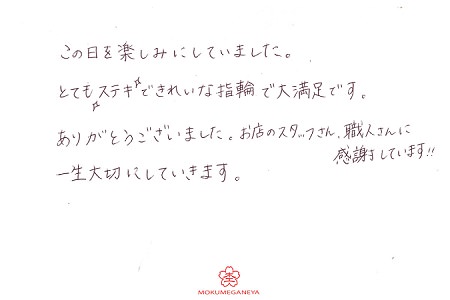 この日を楽しみにしていました。
とてもステキできれいな指輪で大満足です。
ありがとうございました。お店のスタッフさん、職人さんに
感謝しています!!
一生大切にしていきます。
MOKUMEGANEYA